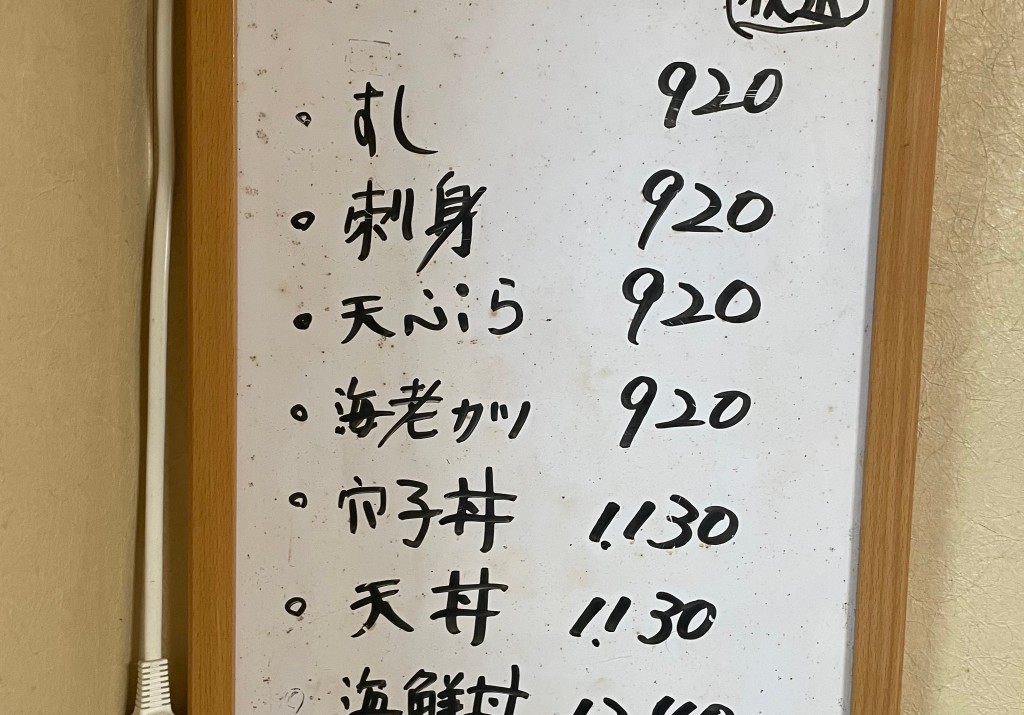 。すし 920
。刺身 920
。天ぷら 920
。海老カツ 920
。穴子丼 1,130
。天丼 1,130
海鮮丼